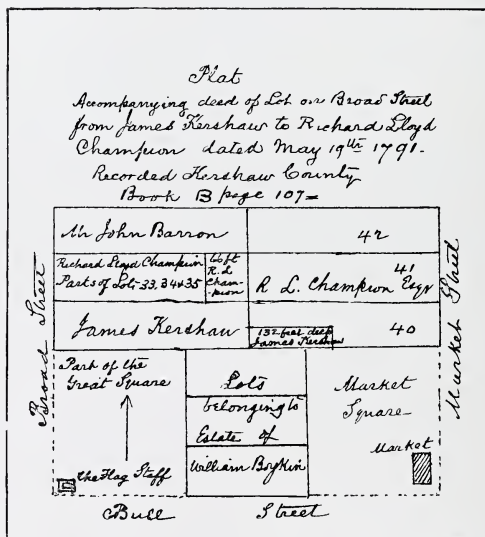 Plat
Accompanying deed of Lot on Broad Street
from James Kershaw to Richard Lloyd
Champion dated May 19th 1791-
Recorded Kershaw County
Book B page 107=
Mr John Barron
42
Richard Lloyd Champion
Parts of Lots 33, 34 & 35
66 ft
R. L
Cham-
pion
41
R L. Champion Esqr
James Kershaw
132 feet deep
James Kershaw
40
Broad Street
Market Street
Part of the
Great Square
the Flag Staff
Lots
belonging to
Estate of
William Boykin
Market
Square
Market
Bull Street